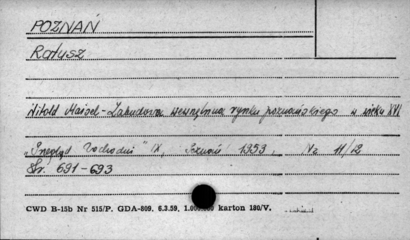 POZNAŃ
Ratusz
Witold Maisel - Zabudowa wewnętrzna rynku poznańskiego w wieku XVI
„Przegląd Zachodni" IX, Poznań 1953, Nr 11/12
Str. 691-693
CWD B-15b Nr 515/P. GDA-809. 6.3.59. karton 180/V.